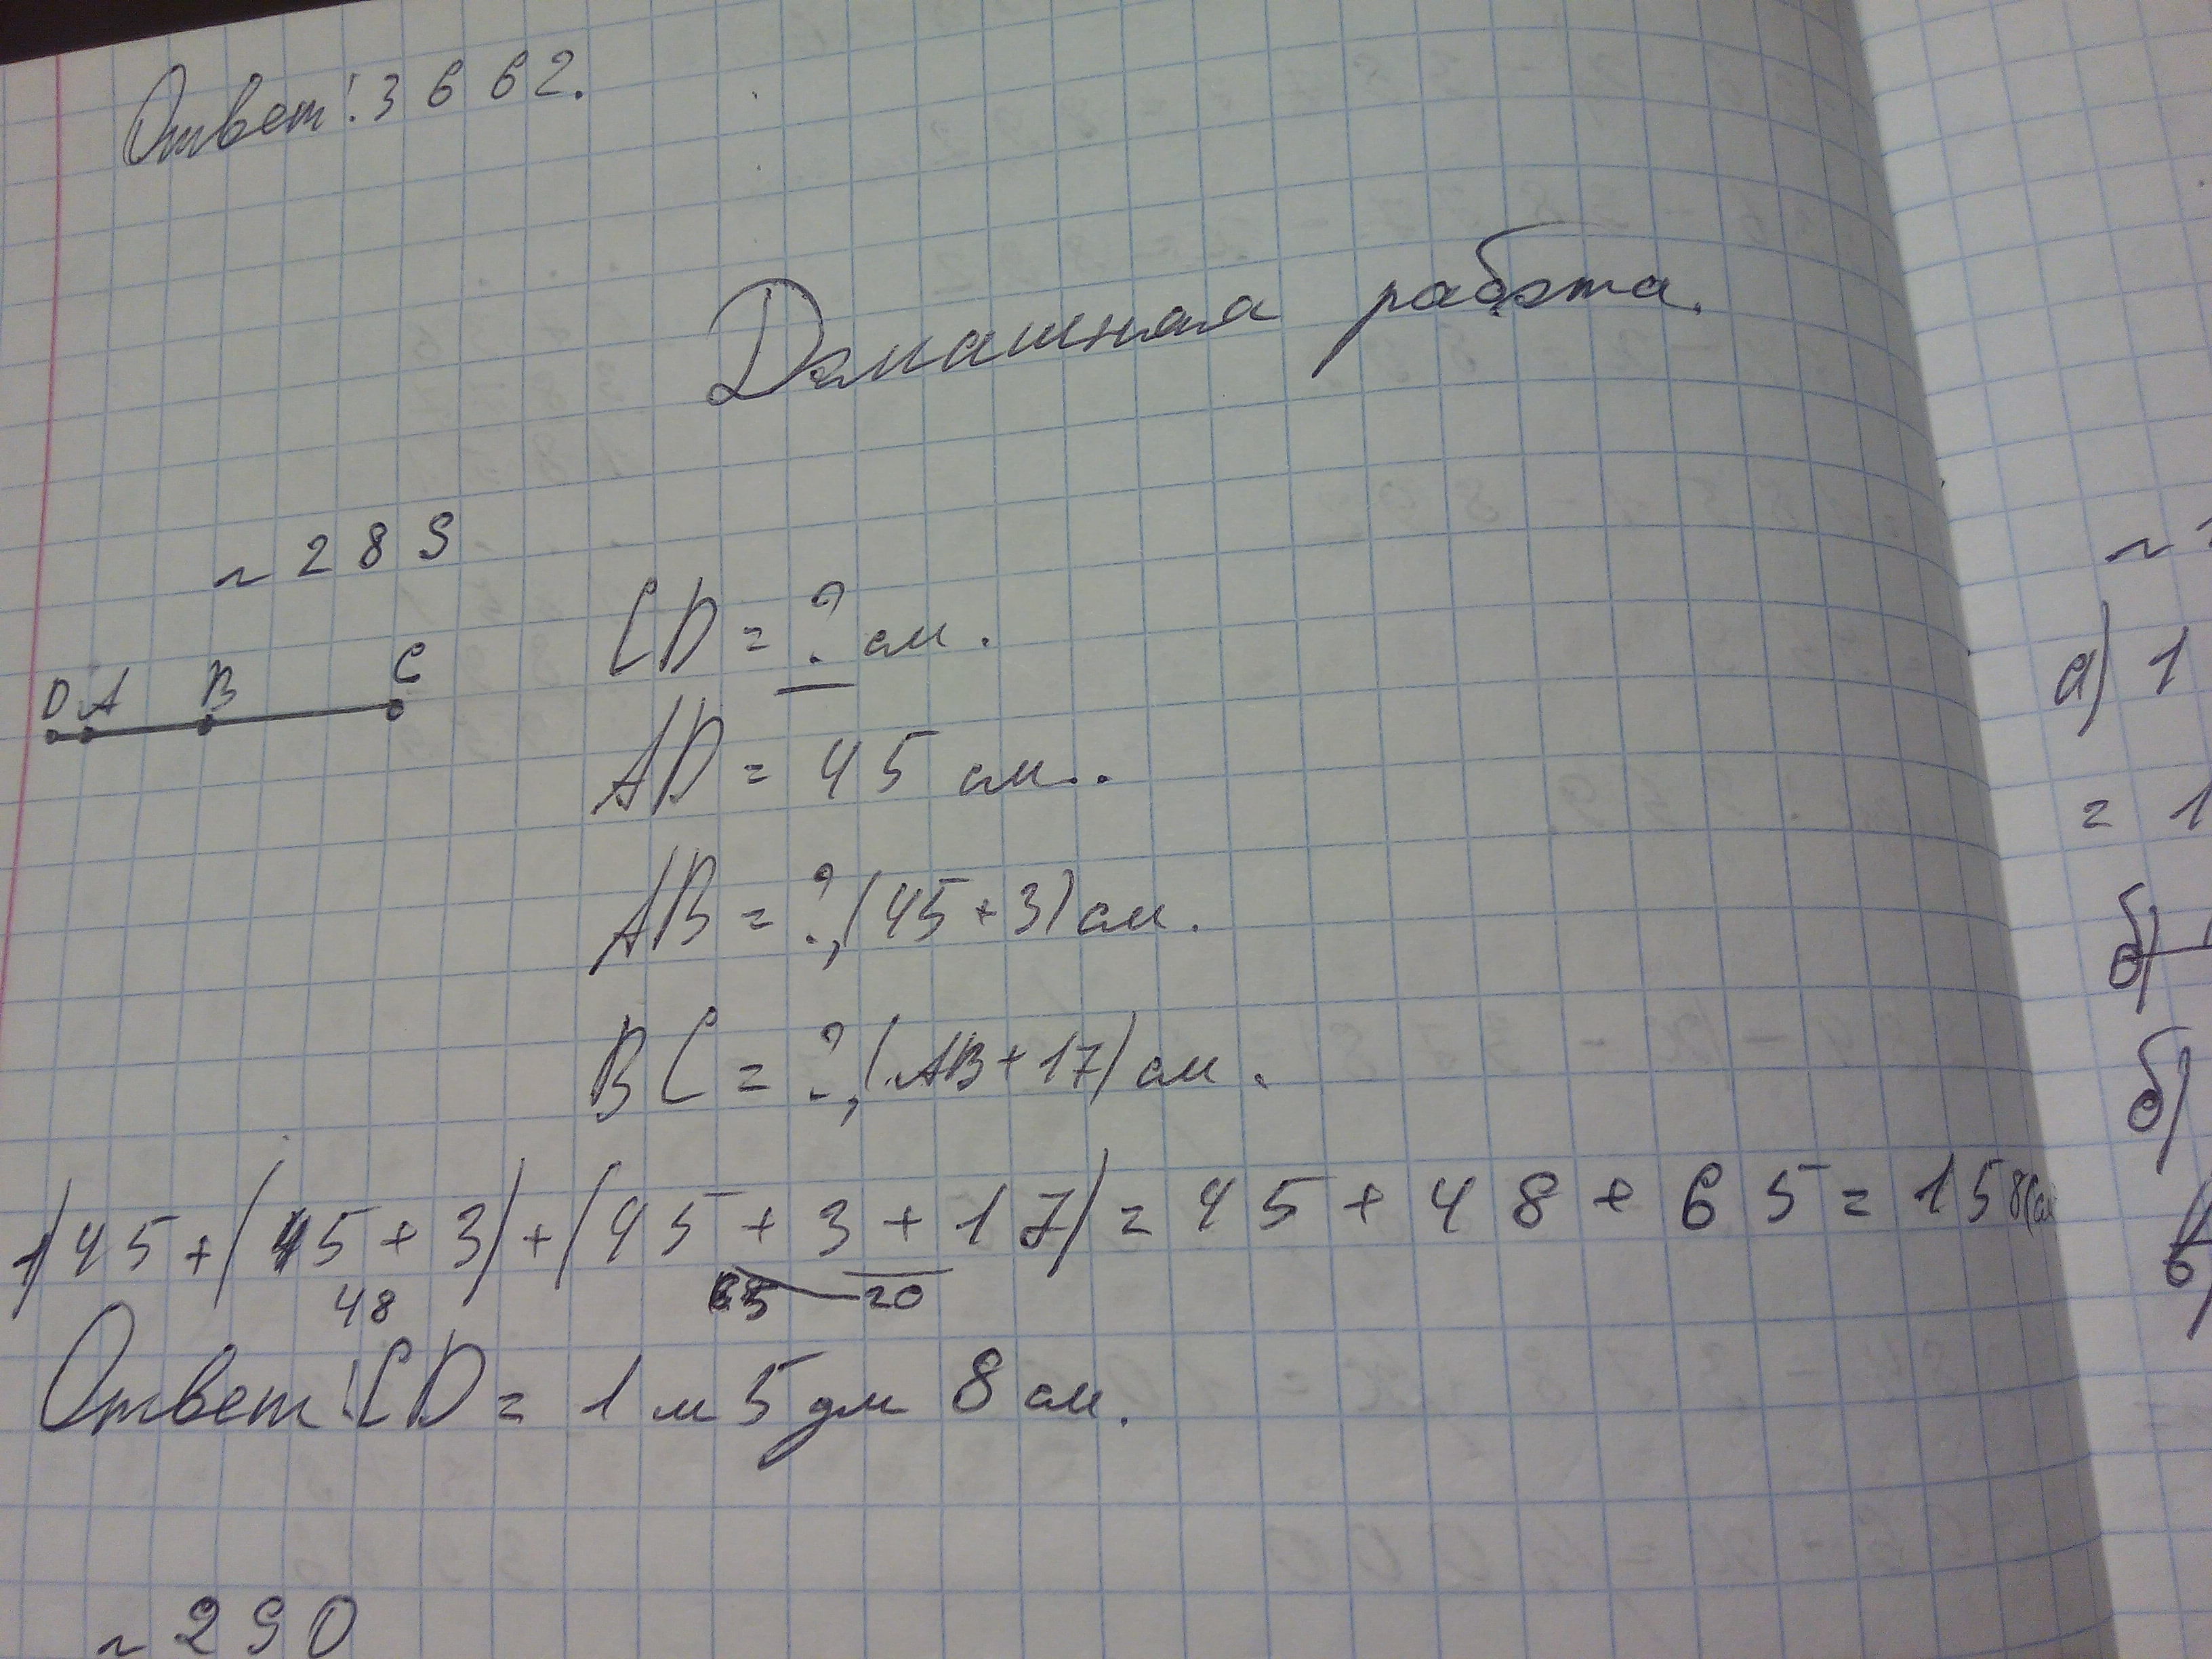 Ответ: 3662.
Домашняя работа.
~ 289
D A B C
CD = ? см.
AD = 45 см..
AB = ?, (45+3) см.
BC = ?, (AB+17) см.
1) 45+(45+3)+(45+3+17)=45+48+65=158(см
48 65 20
Ответ: CD = 1 м 5 дм 8 см.
~ 290
а) 1
= 1
б)
б)
в)